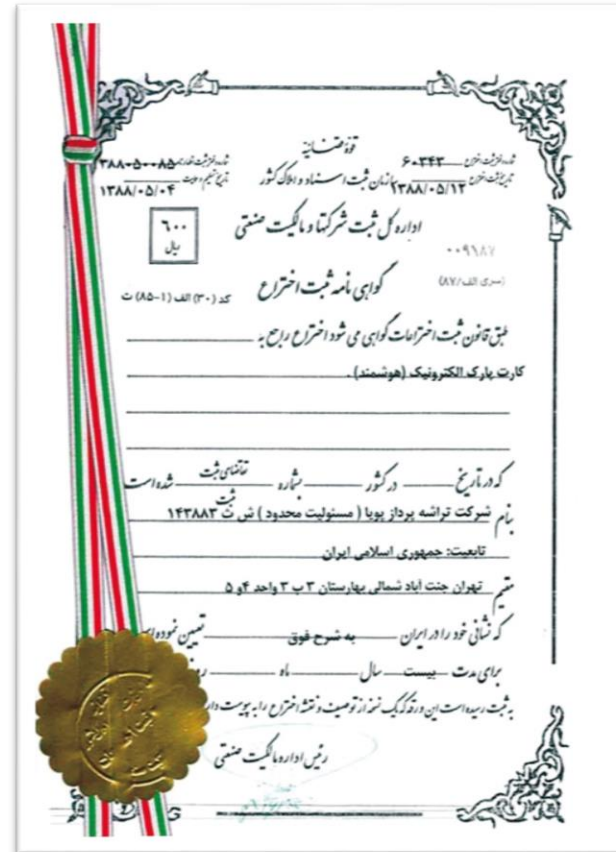 قوه قضائیه
شماره دفتر ثبت اختراع ۶۰۳۴۳
شماره دفتر ثبت اظهارنامه ۳۸۸۰۵۰۰۸۵
تاریخ ثبت اختراع ۱۳۸۸/۰۵/۱۲
سازمان ثبت اسناد و املاک کشور
تاریخ تسلیم ۱۳۸۸/۰۵/۰۴
اداره کل ثبت شرکتها و مالکیت صنعتی
۶۰۰
ریال
۰۰۹۱۸۷
(سری الف/۸۷)
گواهی نامه ثبت اختراع
کد (۳۰) الف (۱-۸۵) ت
طبق قانون ثبت اختراعات گواهی می شود اختراع راجع به
کارت پارک الکترونیک (هوشمند) .
که در تاریخ در کشور بشماره تقاضای ثبت شده است
ثبت
بنام شرکت تراشه پرداز پویا ( مسئولیت محدود ) ش ث ۱۴۳۸۸۳
تابعیت: جمهوری اسلامی ایران
مقیم تهران جنت آباد شمالی بهارستان ۳ پ ۳ واحد ۴و ۵
که نشانی خود را در ایران به شرح فوق تعیین نموده
برای مدت بیست سال ماه
به ثبت رسیده است این ورقه که یک نسخه از توصیف و نقشه اختراع را به پیوست
رئیس اداره مالکیت صنعتی